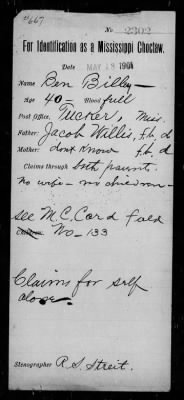 #667
No 2302
For Identification as a Mississippi Choctaw.
Date MAY 13 1901
Name Ben Billey
Age 40 — Blood full
Post Office, Tucker, Miss.
Father: Jacob Willis, f.b. d
Mother: dont know f.b. d
Claims through both parents.
No wife — no children —
see M.C. Card field
Children: No - 133
Claims for self
alone.
Stenographer R.S. Streit.